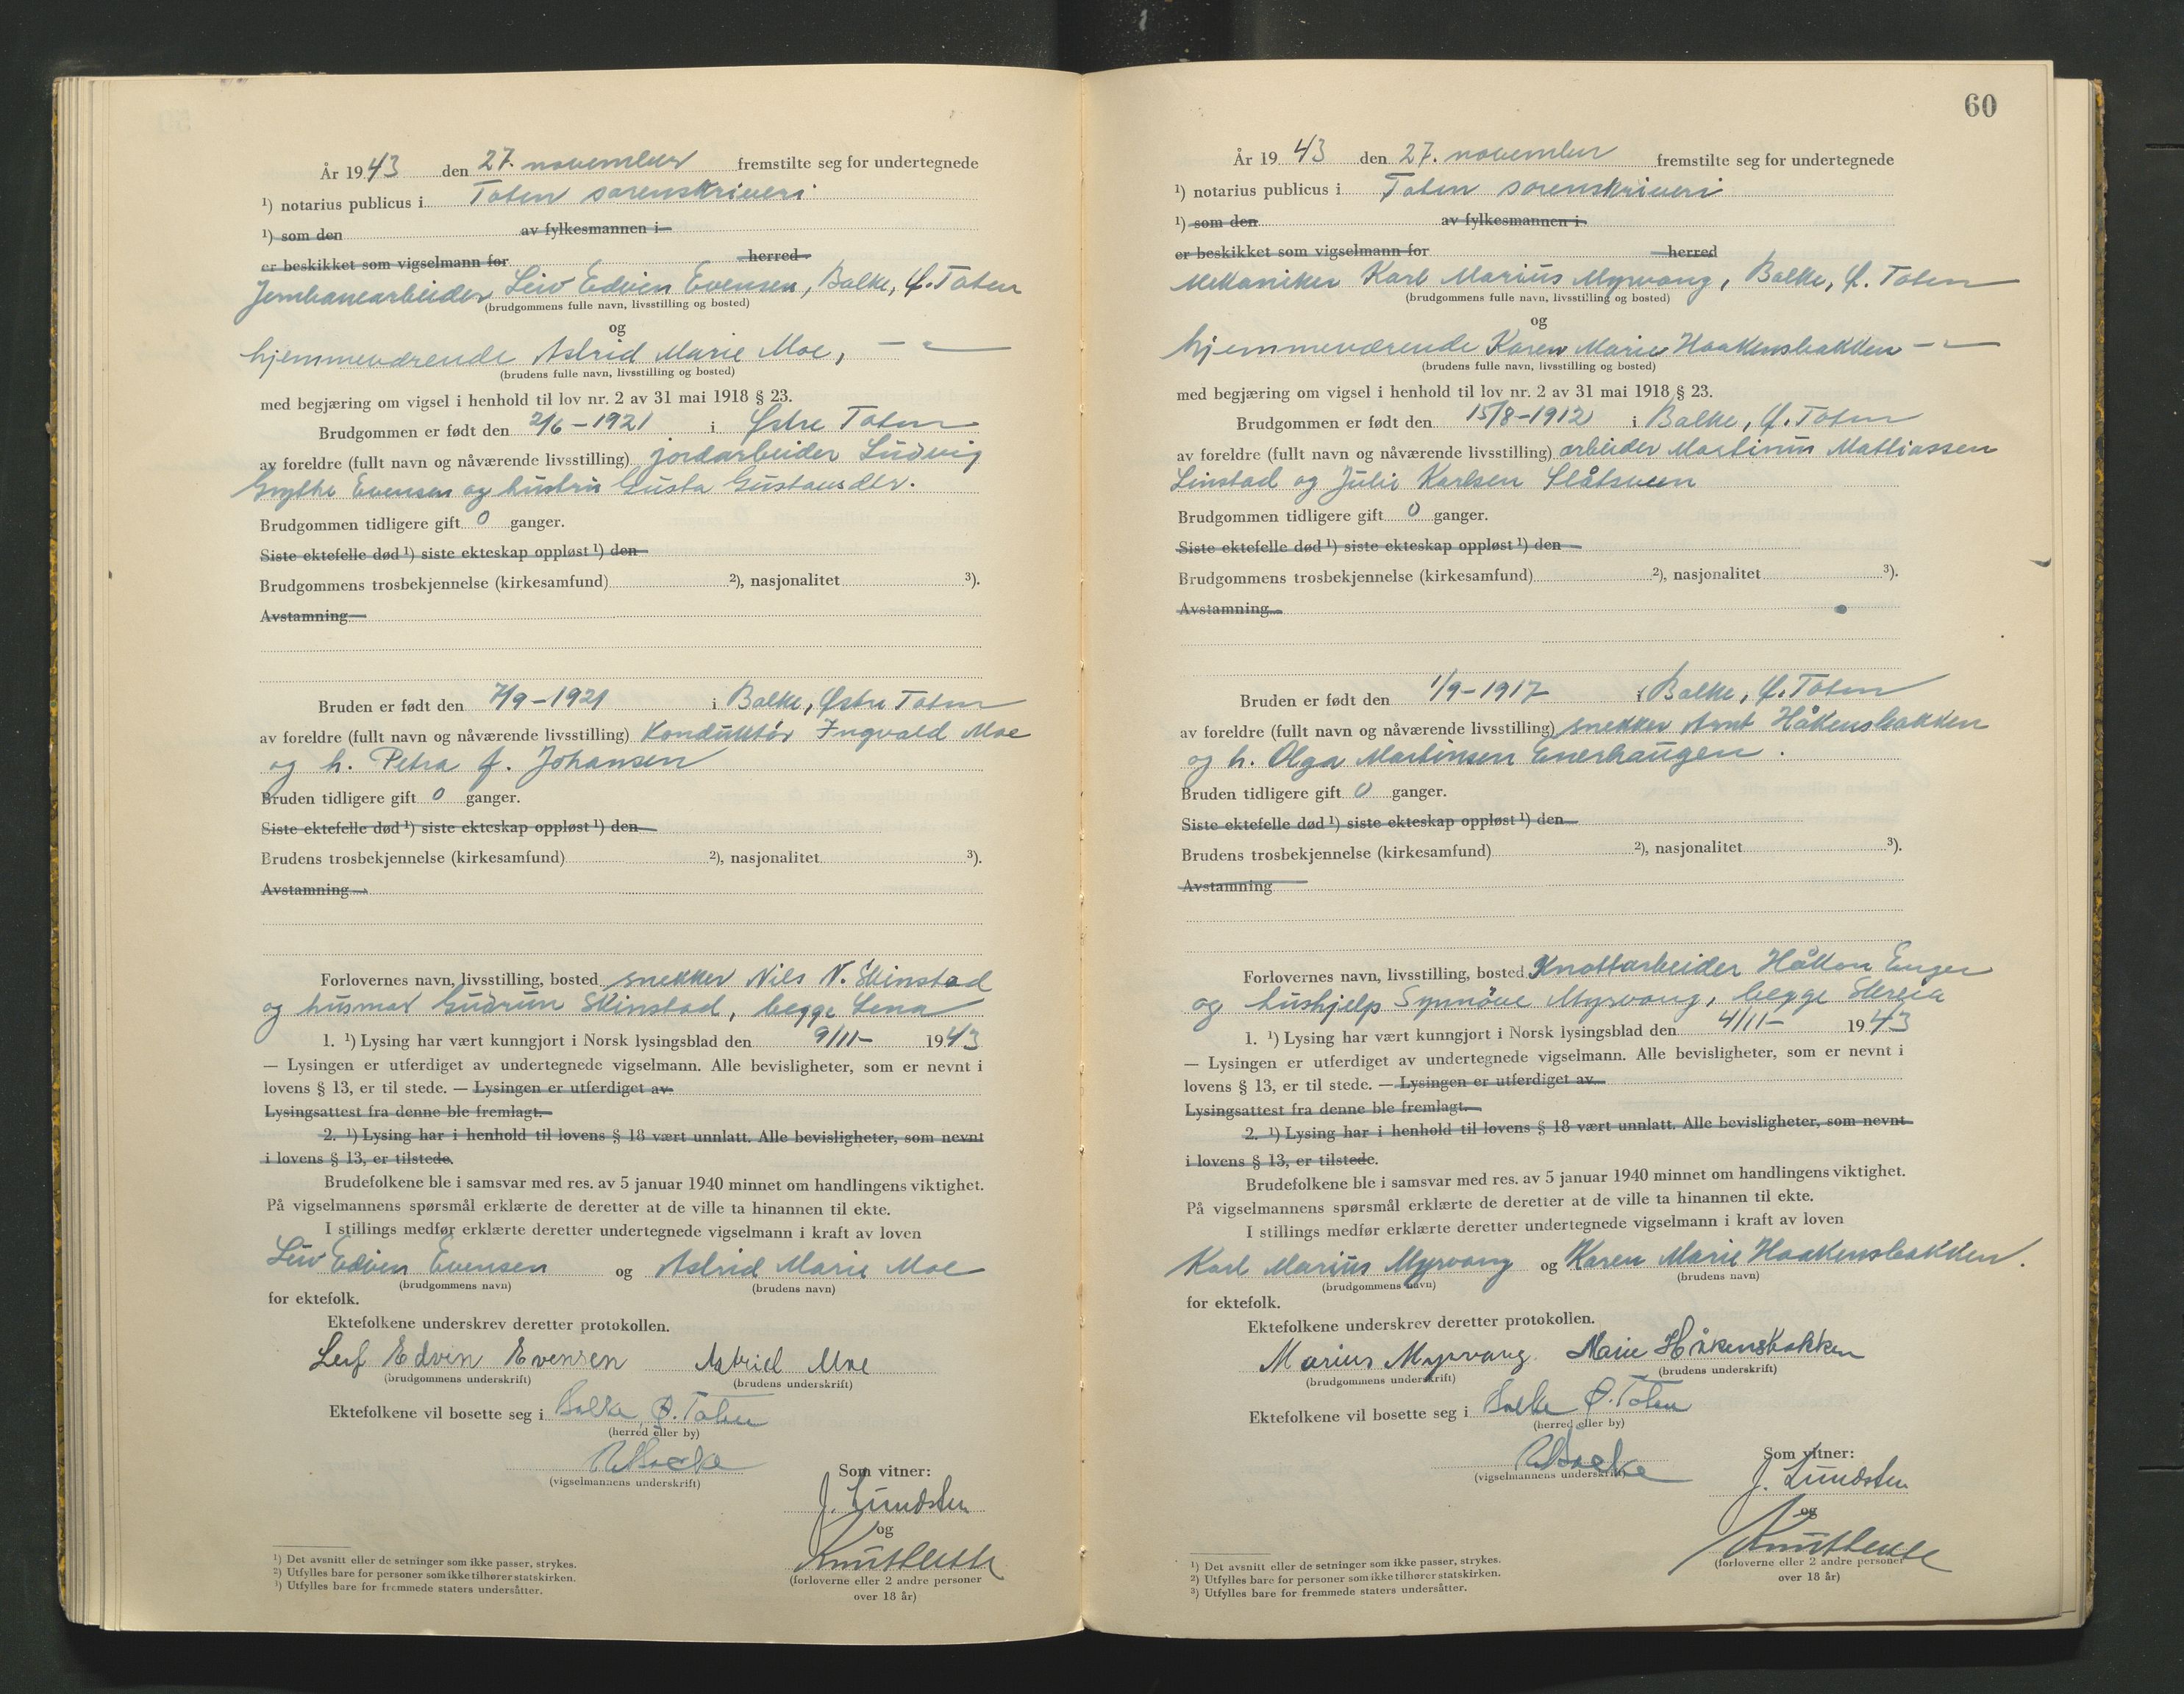 År 1943 den 27. november fremstilte seg for undertegnede
¹) notarius publicus i Toten sorenskriveri
¹) som den av fylkesmannen i
er beskikket som vigselmann for herred
Jernbanearbeider Leiv Edvin Evensen, Balke, Ø. Toten
(brudgommens fulle navn, livsstilling og bosted)
og
hjemmeværende Astrid Marie Moe, — " —
(brudens fulle navn, livsstilling og bosted)
med begjæring om vigsel i henhold til lov nr. 2 av 31 mai 1918 § 23.
Brudgommen er født den 2/6 - 1921 i Østre Toten
av foreldre (fullt navn og nåværende livsstilling) jordarbeider Ludvig
Grythe Evensen og hustru Gusta Gustavsdtr.
Brudgommen tidligere gift 0 ganger.
Siste ektefelle død ¹) siste ekteskap oppløst ¹) den
Brudgommens trosbekjennelse (kirkesamfund) ²), nasjonalitet ³).
Avstamning
Bruden er født den 7/9 - 1921 i Balke, Østre Toten
av foreldre (fullt navn og nåværende livsstilling) Konduktør Ingvald Moe
og h. Petra f. Johansen
Bruden tidligere gift 0 ganger.
Siste ektefelle død ¹) siste ekteskap oppløst ¹) den
Brudens trosbekjennelse (kirkesamfund) ²), nasjonalitet ³).
Avstamning
Forlovernes navn, livsstilling, bosted snekker Nils N. Skinstad
og husmor Gudrun Skinstad, begge Lena
1. ¹) Lysing har vært kunngjort i Norsk lysingsblad den 9/11- 1943
— Lysingen er utferdiget av undertegnede vigselmann. Alle bevisligheter, som er nevnt i
lovens § 13, er til stede. — Lysingen er utferdiget av
Lysingsattest fra denne ble fremlagt.
2. ¹) Lysing har i henhold til lovens § 18 vært unnlatt. Alle bevisligheter, som nevnt
i lovens § 13, er tilstede.
Brudefolkene ble i samsvar med res. av 5 januar 1940 minnet om handlingens viktighet.
På vigselmannens spørsmål erklærte de deretter at de ville ta hinannen til ekte.
I stillings medfør erklærte deretter undertegnede vigselmann i kraft av loven
Leiv Edvin Evensen og Astrid Marie Moe
(brudgommens navn) (brudens navn)
for ektefolk.
Ektefolkene underskrev deretter protokollen.
Leif Edvin Evensen Astrid Moe
(brudgommens underskrift) (brudens underskrift)
Ektefolkene vil bosette seg i Balke, Ø. Toten
(herred eller by)
(vigselmannens underskrift)
Som vitner:
J. Lundsten
og
(forloverne eller 2 andre personer
over 18 år)
¹) Det avsnitt eller de setninger som ikke passer, strykes.
²) Utfylles bare for personer som ikke tilhører statskirken.
³) Utfylles bare for fremmede staters undersåtter.
60
År 1943 den 27. november fremstilte seg for undertegnede
¹) notarius publicus i Toten sorenskriveri
¹) som den av fylkesmannen i
er beskikket som vigselmann for herred
Mekaniker Karl Marius Myrvang, Balke, Ø. Toten
(brudgommens fulle navn, livsstilling og bosted)
og
hjemmeværende Karen Marie Haakensbakken — " —
(brudens fulle navn, livsstilling og bosted)
med begjæring om vigsel i henhold til lov nr. 2 av 31 mai 1918 § 23.
Brudgommen er født den 15/8 - 1912 i Balke, Ø. Toten
av foreldre (fullt navn og nåværende livsstilling) arbeider Martinus Mattiassen
Linstad og Julie Karlsen Slåtsveen
Brudgommen tidligere gift 0 ganger.
Siste ektefelle død ¹) siste ekteskap oppløst ¹) den
Brudgommens trosbekjennelse (kirkesamfund) ²), nasjonalitet ³).
Avstamning
Bruden er født den 1/9 - 1917 i Balke, Ø. Toten
av foreldre (fullt navn og nåværende livsstilling) snekker Arnt Håkensbakken
og h. Olga Martinsen Enerhaugen.
Bruden tidligere gift 0 ganger.
Siste ektefelle død ¹) siste ekteskap oppløst ¹) den
Brudens trosbekjennelse (kirkesamfund) ²), nasjonalitet ³).
Avstamning
Forlovernes navn, livsstilling, bosted Knottarbeider Håkon Enger
og hushjelp Synnöve Myrvang, begge Skreia
1. ¹) Lysing har vært kunngjort i Norsk lysingsblad den 4/11- 1943
— Lysingen er utferdiget av undertegnede vigselmann. Alle bevisligheter, som er nevnt i
lovens § 13, er til stede. — Lysingen er utferdiget av
Lysingsattest fra denne ble fremlagt.
2. ¹) Lysing har i henhold til lovens § 18 vært unnlatt. Alle bevisligheter, som nevnt
i lovens § 13, er tilstede.
Brudefolkene ble i samsvar med res. av 5 januar 1940 minnet om handlingens viktighet.
På vigselmannens spørsmål erklærte de deretter at de ville ta hinannen til ekte.
I stillings medfør erklærte deretter undertegnede vigselmann i kraft av loven
Karl Marius Myrvang og Karen Marie Haakensbakken.
(brudgommens navn) (brudens navn)
for ektefolk.
Ektefolkene underskrev deretter protokollen.
Marius Myrvang. Marie Håkensbakken
(brudgommens underskrift) (brudens underskrift)
Ektefolkene vil bosette seg i Balke Ø. Toten
(herred eller by)
(vigselmannens underskrift)
Som vitner:
J. Lundsten
og
(forloverne eller 2 andre personer
over 18 år)
¹) Det avsnitt eller de setninger som ikke passer, strykes.
²) Utfylles bare for personer som ikke tilhører statskirken.
³) Utfylles bare for fremmede staters undersåtter.